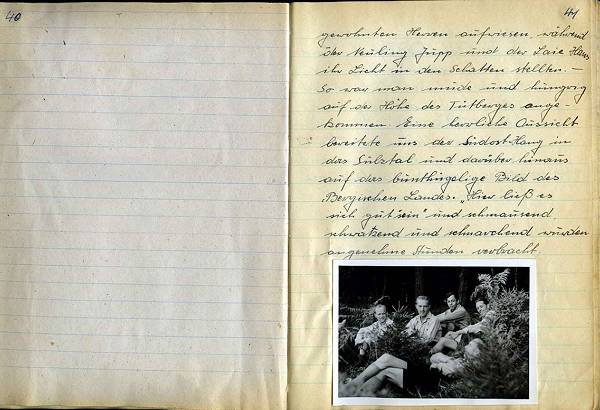 40
41
gewohnten Herren aufwiesen während
der Neuling Jupp und der Laie Hans
ihr Licht in den Schatten stellten. —
So war man müde und hungrig
auf der Höhe des Lütberges ange-
kommen. Eine herrliche Aussicht
bereitete uns der Südost-Hang in
das Sülztal und darüber hinaus
auf das bunthügelige Bild des
Bergischen Landes. „Hier ließ es
sich gut sein" und schmausend,
schwatzend und schnarchend wurden
angenehme Stunden verbracht.